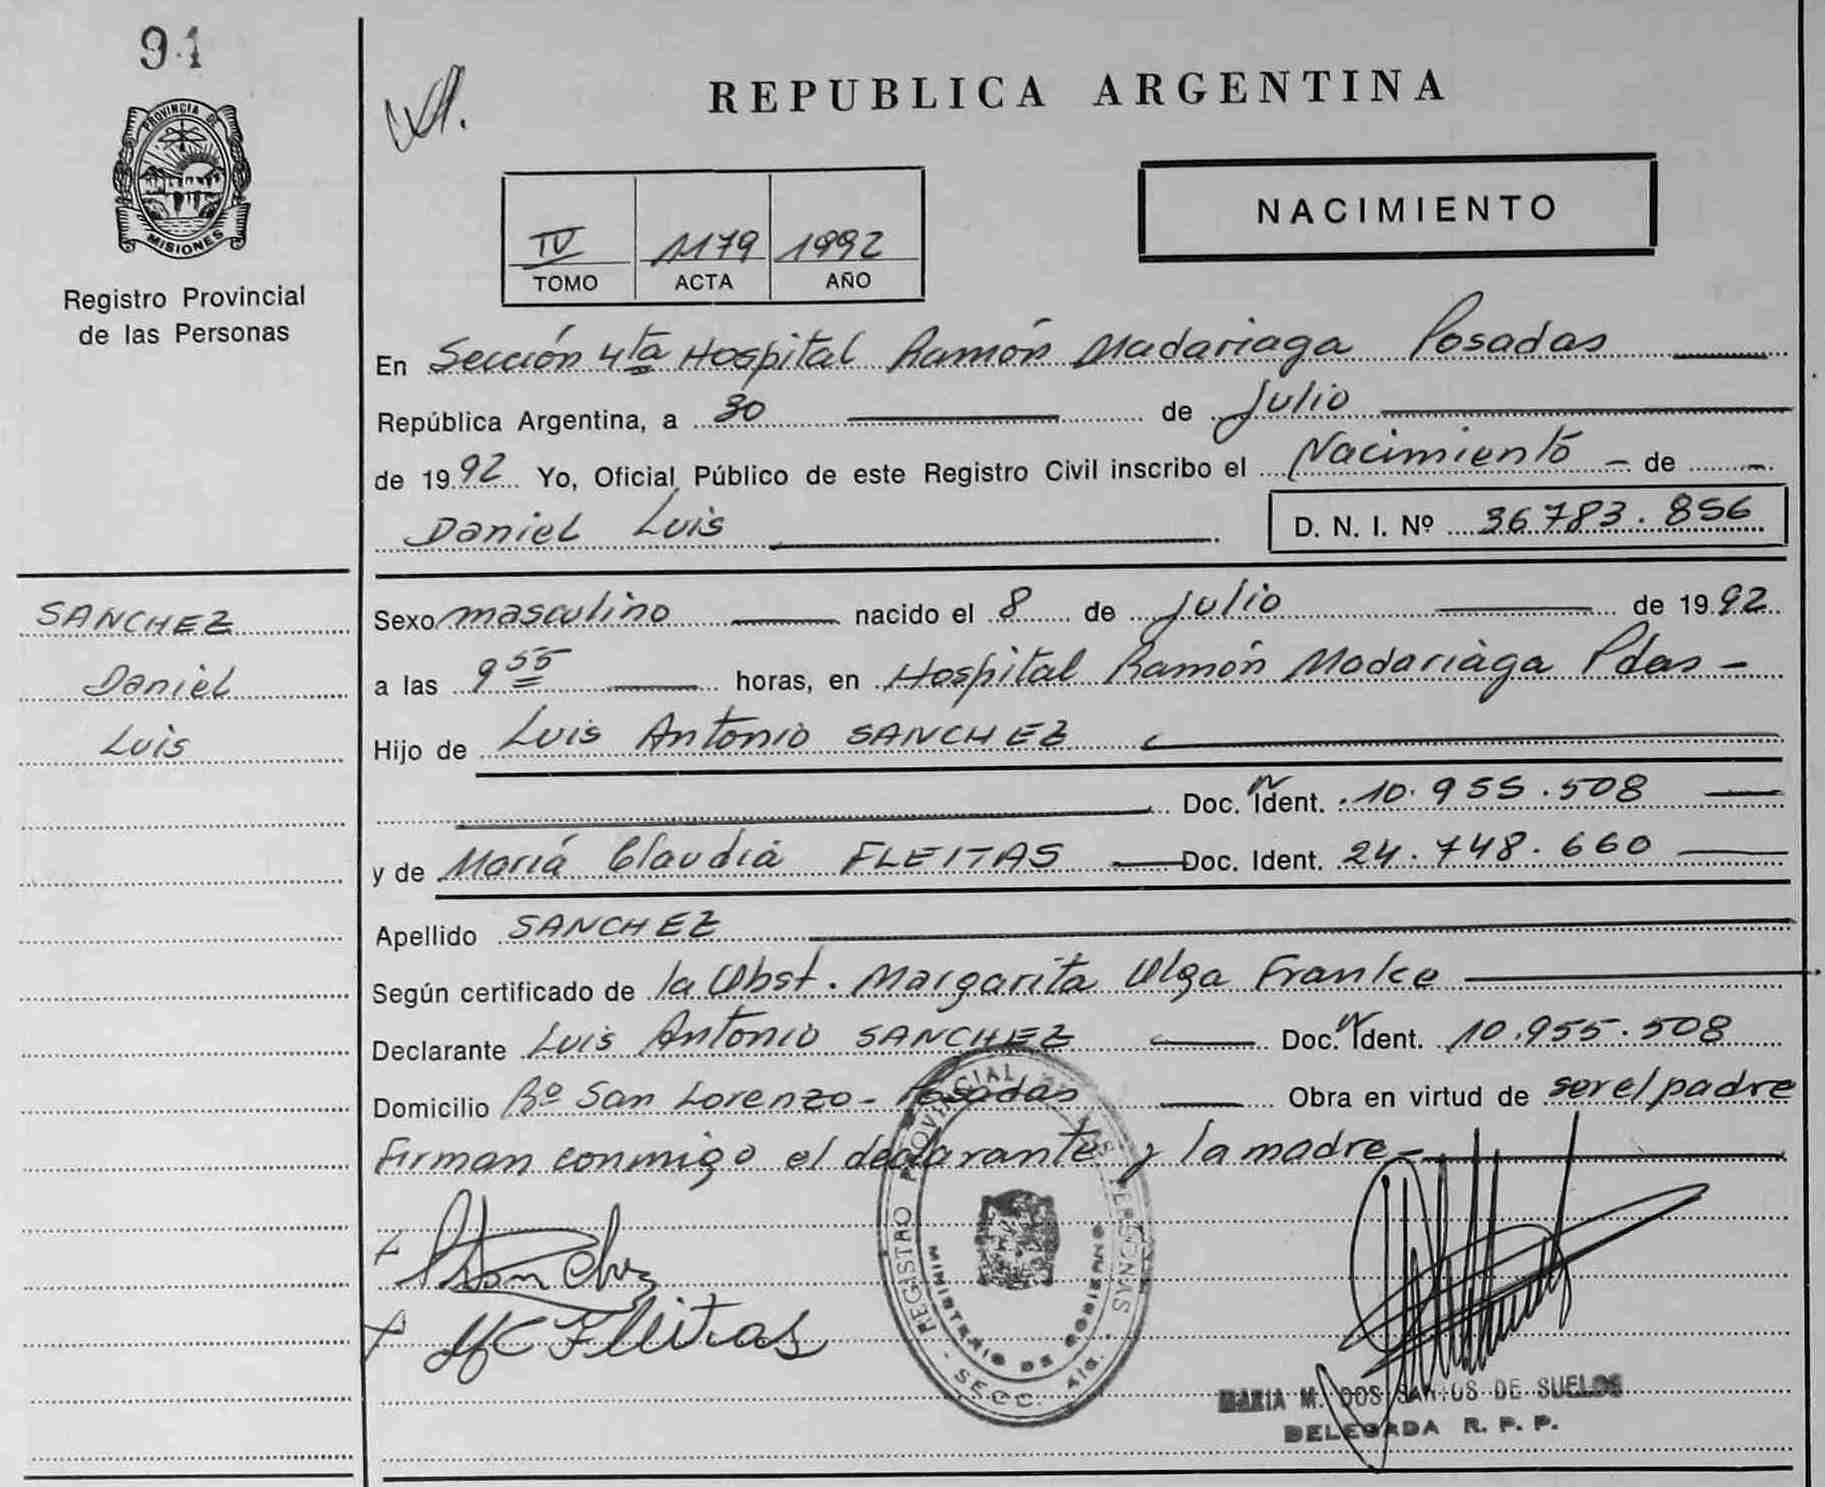 94
REPUBLICA ARGENTINA
PROVINCIA DE
MISIONES
Registro Provincial
de las Personas
NACIMIENTO
IV 1179 1992
TOMO ACTA AÑO
En Sección 4ta Hospital Ramón Madariaga Posadas
República Argentina, a 30 de Julio
de 1992 Yo, Oficial Público de este Registro Civil inscribo el Nacimiento de
Daniel Luis D. N. I. Nº 36783.856
SANCHEZ
Daniel
Luis
Sexo masculino nacido el 8 de Julio de 1992
a las 9 55 horas, en Hospital Ramón Madariaga Pdas
Hijo de Luis Antonio SANCHEZ
Doc. Ident. 10.955.508
y de María Claudia FLEITAS Doc. Ident. 24.748.660
Apellido SANCHEZ
Según certificado de la Obst. Margarita Olga Franke
Declarante Luis Antonio SANCHEZ Doc. Ident. 10.955.508
Domicilio Bº San Lorenzo - Posadas Obra en virtud de ser el padre
Firman conmigo el declarante y la madre
REGISTRO PROVINCIAL PERSONAS
MINISTERIO DE GOBIERNO
- SECC. 4ta. -
Sanchez
MC Fleitas
MARIA M. DOS SANTOS DE SUELOS
DELEGADA R. P. P.